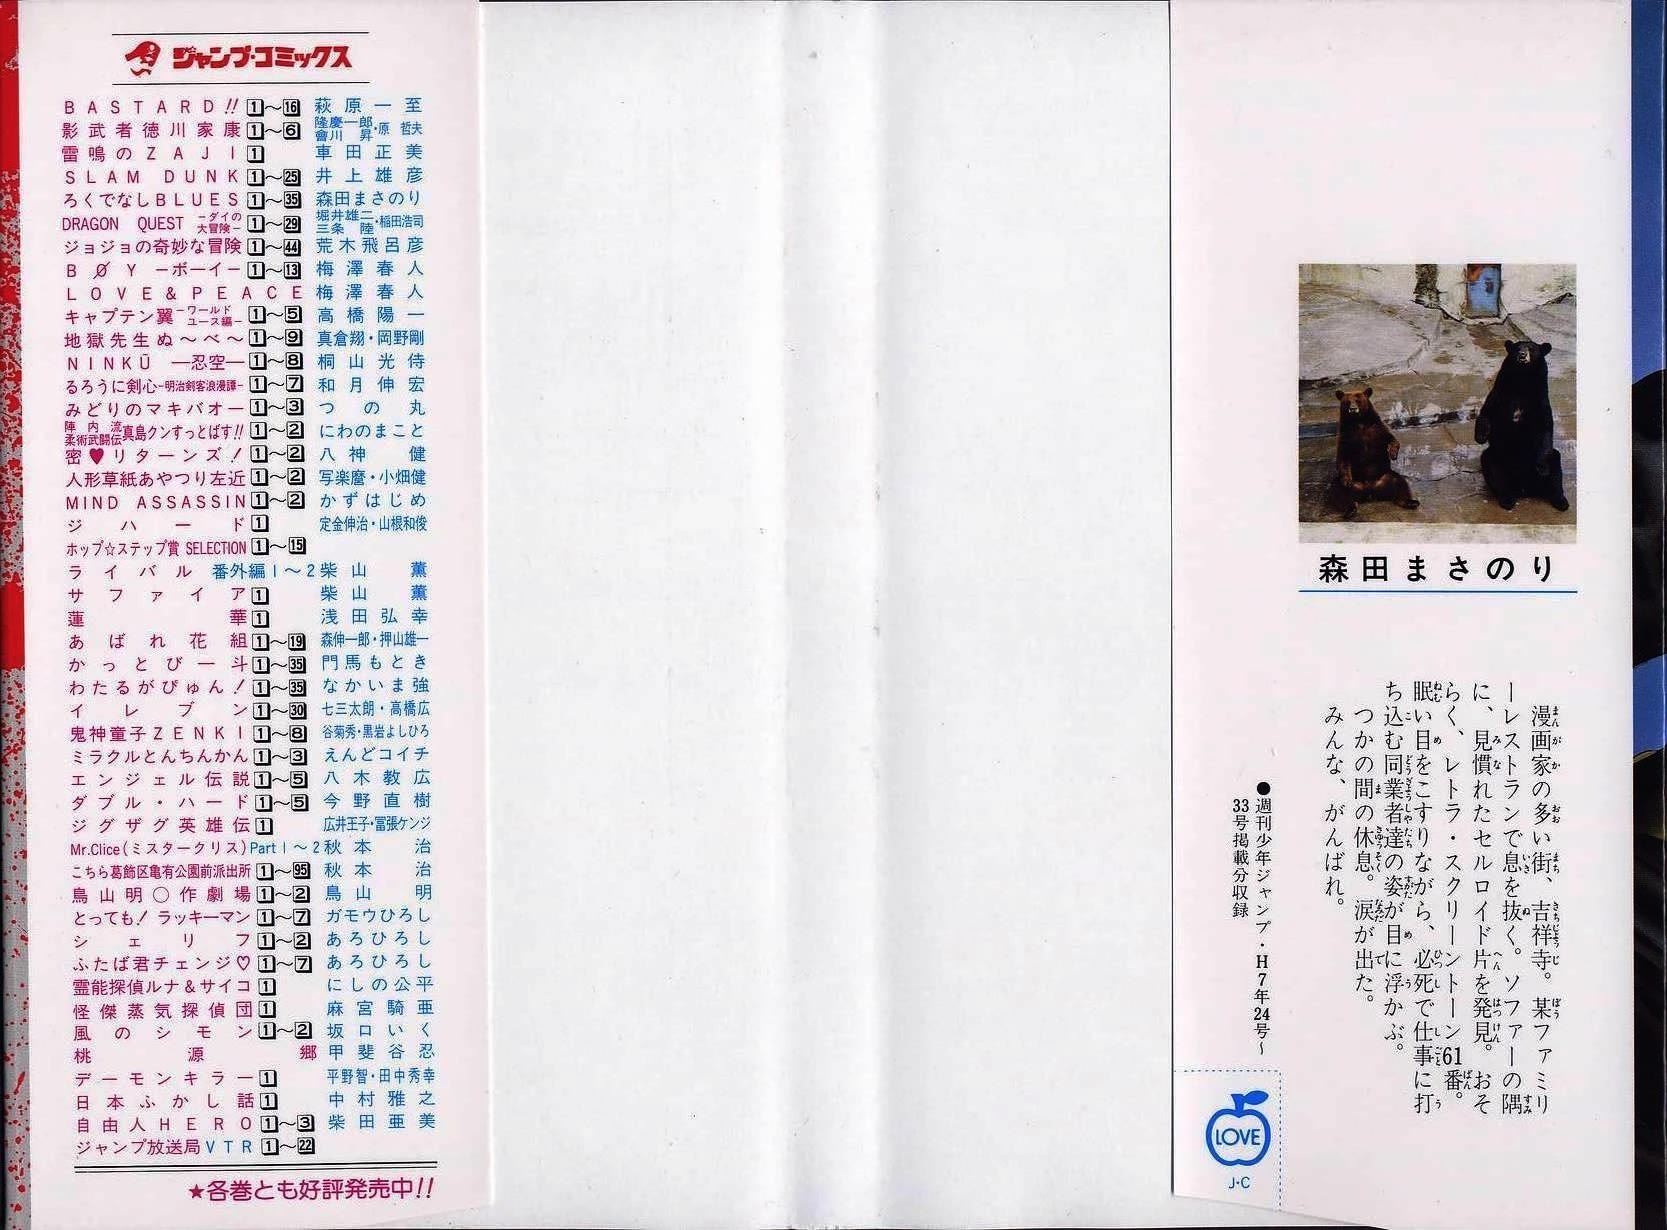 ジャンプ・コミックス
BASTARD!! 1～16 萩原一至
影武者徳川家康 1～6 隆慶一郎・會川 昇・原 哲夫
雷鳴のZAJI 1 車田正美
SLAM DUNK 1～25 井上雄彦
ろくでなしBLUES 1～35 森田まさのり
DRAGON QUEST －ダイの大冒険－ 1～29 堀井雄二・三条 陸・稲田浩司
ジョジョの奇妙な冒険 1～44 荒木飛呂彦
BØY －ボーイ－ 1～13 梅澤春人
LOVE&PEACE 梅澤春人
キャプテン翼 －ワールドユース編－ 1～5 高橋陽一
地獄先生ぬ～べ～ 1～9 真倉翔・岡野剛
NINKŪ ―忍空― 1～8 桐山光侍
るろうに剣心－明治剣客浪漫譚－ 1～7 和月伸宏
みどりのマキバオー 1～3 つの丸
陣内流柔術武闘伝 真島クンすっとばす!! 1～2 にわのまこと
密♥リターンズ! 1～2 八神 健
人形草紙あやつり左近 1～2 写楽麿・小畑健
MIND ASSASSIN 1～2 かずはじめ
ジハード 1 定金伸治・山根和俊
ホップ☆ステップ賞 SELECTION 1～15
ライバル 番外編 1～2 柴山 薫
サファイア 1 柴山 薫
蓮華 1 浅田弘幸
あばれ花組 1～19 森伸一郎・押山雄一
かっとび一斗 1～35 門馬もとき
わたるがぴゅん! 1～35 なかいま強
イレブン 1～30 七三太朗・高橋広
鬼神童子ZENKI 1～8 谷菊秀・黒岩よしひろ
ミラクルとんちんかん 1～3 えんどコイチ
エンジェル伝説 1～5 八木教広
ダブル・ハード 1～5 今野直樹
ジグザグ英雄伝 1 広井王子・冨張ケンジ
Mr.Clice(ミスタークリス) Part 1～2 秋本 治
こちら葛飾区亀有公園前派出所 1～95 秋本 治
鳥山明〇作劇場 1～2 鳥山 明
とっても! ラッキーマン 1～7 ガモウひろし
シェリフ 1～2 あろひろし
ふたば君チェンジ♡ 1～7 あろひろし
霊能探偵ルナ&サイコ 1 にしの公平
怪傑蒸気探偵団 1 麻宮騎亜
風のシモン 1～2 坂口いく
桃源郷 甲斐谷忍
デーモンキラー 1 平野智・田中秀幸
日本ふかし話 1 中村雅之
自由人HERO 1～3 柴田亜美
ジャンプ放送局 VTR 1～22
★各巻とも好評発売中!!
森田まさのり
漫画家の多い街、吉祥寺。某ファミリ
ーレストランで息を抜く。ソファーの隅
に、見慣れたセルロイド片を発見。おそ
らく、レトラ・スクリーントーン61番。
眠い目をこすりながら、必死で仕事に打
ち込む同業者達の姿が目に浮かぶ。
つかの間の休息。涙が出た。
みんな、がんばれ。
●週刊少年ジャンプ・H7年24号～
33号掲載分収録
LOVE
J・C